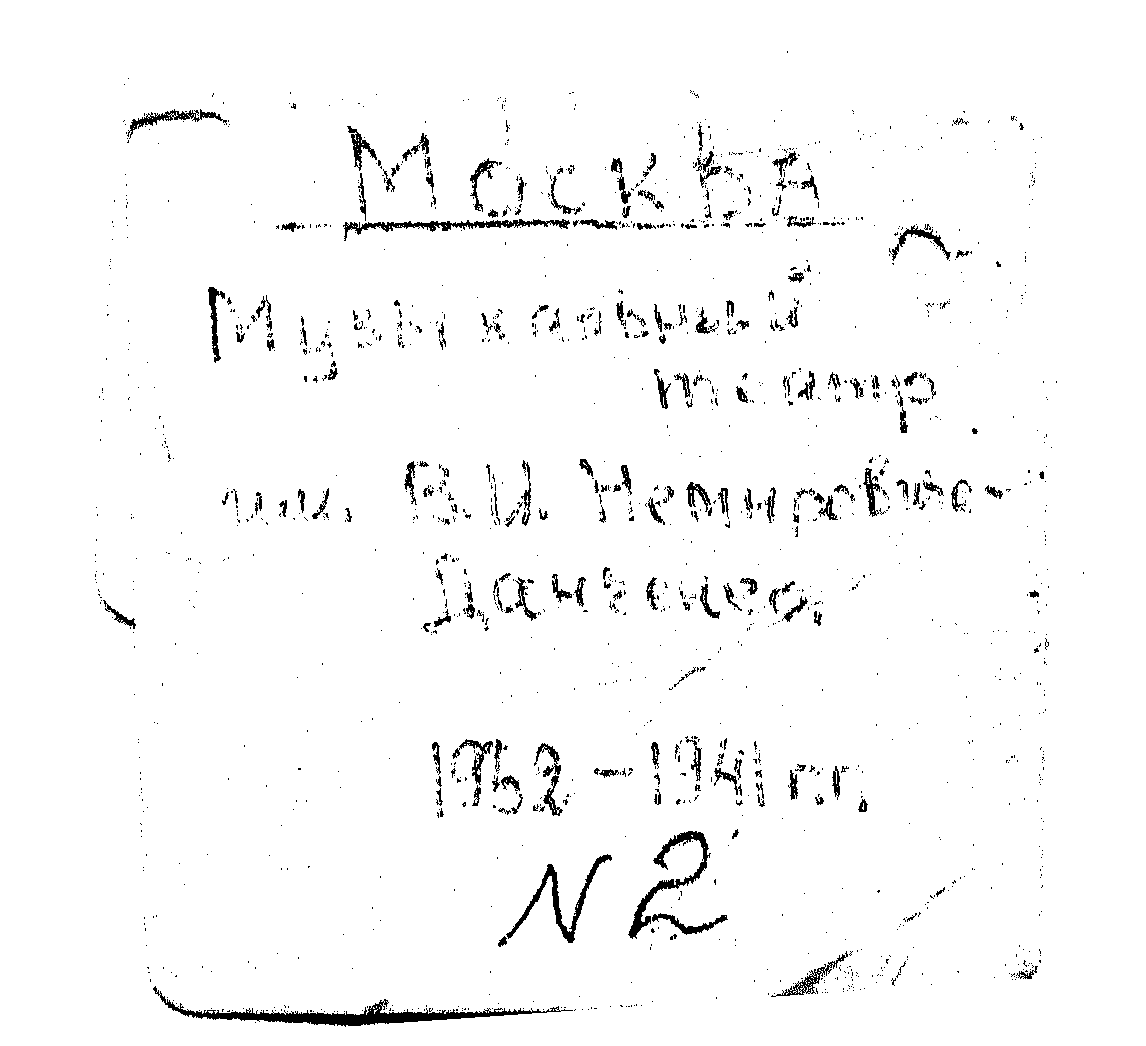 Москва
Музыкальный
театр
им. В.И. Немировича-
Данченко.
1932-1941 г.г.
N 2